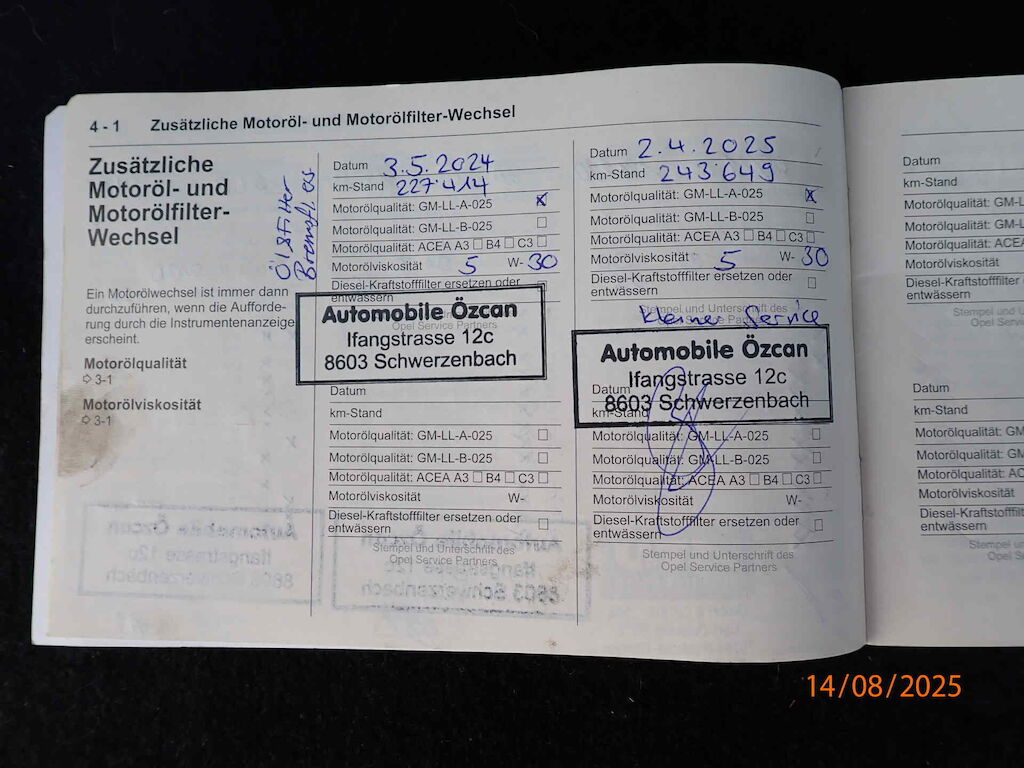 4 - 1 Zusätzliche Motoröl- und Motorölfilter-Wechsel
Zusätzliche
Motoröl- und
Motorölfilter-
Wechsel
Ein Motorölwechsel ist immer dann
durchzuführen, wenn die Aufforde-
rung durch die Instrumentenanzeige
erscheint.
Motorölqualität
⇨ 3-1
Motorölviskosität
⇨ 3-1
Datum 3.5.2024
km-Stand 227'414
Motorölqualität: GM-LL-A-025 x
Motorölqualität: GM-LL-B-025 □
Motorölqualität: ACEA A3 □ B4 □ C3 □
Motorölviskosität 5 W- 30
Diesel-Kraftstofffilter ersetzen oder
entwässern
Automobile Özcan
Opel Service Partners
Ifangstrasse 12c
8603 Schwerzenbach
Datum
km-Stand
Motorölqualität: GM-LL-A-025 □
Motorölqualität: GM-LL-B-025 □
Motorölqualität: ACEA A3 □ B4 □ C3 □
Motorölviskosität W-
Diesel-Kraftstofffilter ersetzen oder □
entwässern
Stempel und Unterschrift des
Opel Service Partners
Datum 2.4.2025
km-Stand 243'649
Motorölqualität: GM-LL-A-025 x
Motorölqualität: GM-LL-B-025 □
Motorölqualität: ACEA A3 □ B4 □ C3 □
Motorölviskosität 5 W- 30
Diesel-Kraftstofffilter ersetzen oder □
entwässern
Stempel und Unterschrift des
kleiner Service
Automobile Özcan
Ifangstrasse 12c
8603 Schwerzenbach
Datum
km-Stand
Motorölqualität: GM-LL-A-025 □
Motorölqualität: GM-LL-B-025 □
Motorölqualität: ACEA A3 □ B4 □ C3 □
Motorölviskosität W-
Diesel-Kraftstofffilter ersetzen oder □
entwässern
Stempel und Unterschrift des
Opel Service Partners
Datum
km-Stand
Motorölqualität: GM-L
Motorölqualität: GM-L
Motorölqualität: ACEA
Motorölviskosität
Diesel-Kraftstofffilter
entwässern
Stempel und
Opel Servi
Datum
km-Stand
Motorölqualität: GM
Motorölqualität: GM
Motorölqualität: ACE
Motorölviskosität
Diesel-Kraftstofffilter
entwässern
Stempel u
Opel Se
14/08/2025